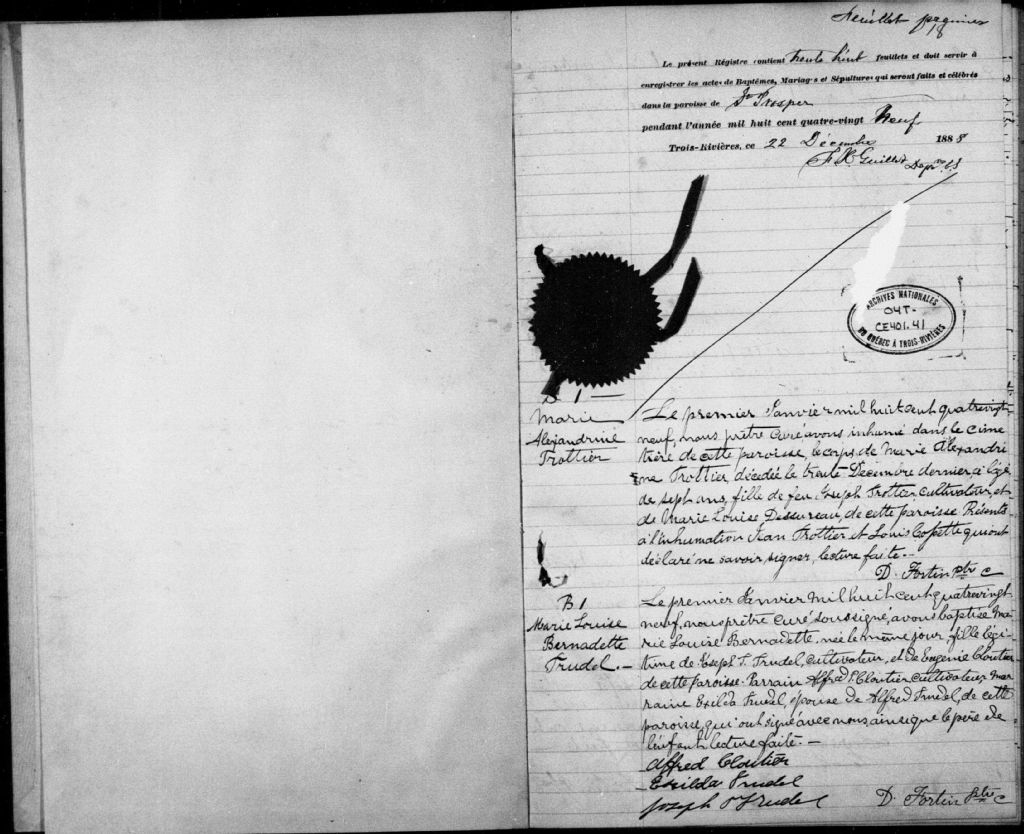 feuillet premier
18
Le présent Régistre contient trente huit feuillets et doit servir à
enregistrer les actes de Baptêmes, Mariages et Sépultures qui seront faits et célébrés
dans la paroisse de St Prosper
pendant l'année mil huit cent quatre-vingt Neuf
Trois-Rivières, ce 22 Décembre 1888
Guillet Dep
ARCHIVES NATIONALES
04T-
CE401.41
DU QUÉBEC À TROIS-RIVIÈRES
S 1 —
Marie
Alexandrine
Trottier
Le premier Janvier mil huit cent quatrevingt
neuf, nous prêtre curé avons inhumé dans le cime
tière de cette paroisse, le corps de Marie Alexandri
ne Trottier, décédée le trente Décembre dernier, à l'âge
de sept ans, fille de feu Joseph Trottier, cultivateur, et
de Marie Louise Dessureau, de cette paroisse. Présents
à l'inhumation Jean Trottier et Louis qui ont
déclaré ne savoir signer, lecture faite. —
D. Fortin ptre c
B 1
Marie Louise
Bernadette
Trudel. —
Le premier Janvier mil huit cent quatrevingt
neuf, nous prêtre curé soussigné, avons baptisé Ma
rie Louise Bernadette, née le même jour, fille légi
time de Joseph T. Trudel, cultivateur, et de Eugenie Cloutier
de cette paroisse. Parrain Alfred Cloutier cultivateur, mar
raine Exilda Trudel, épouse de Alfred Trudel, de cette
paroisse, qui ont signé avec nous, ainsi que le père de
l'enfant lecture faite. —
Alfred Cloutier
Exilda Trudel
Joseph T Trudel
D. Fortin Ptre c